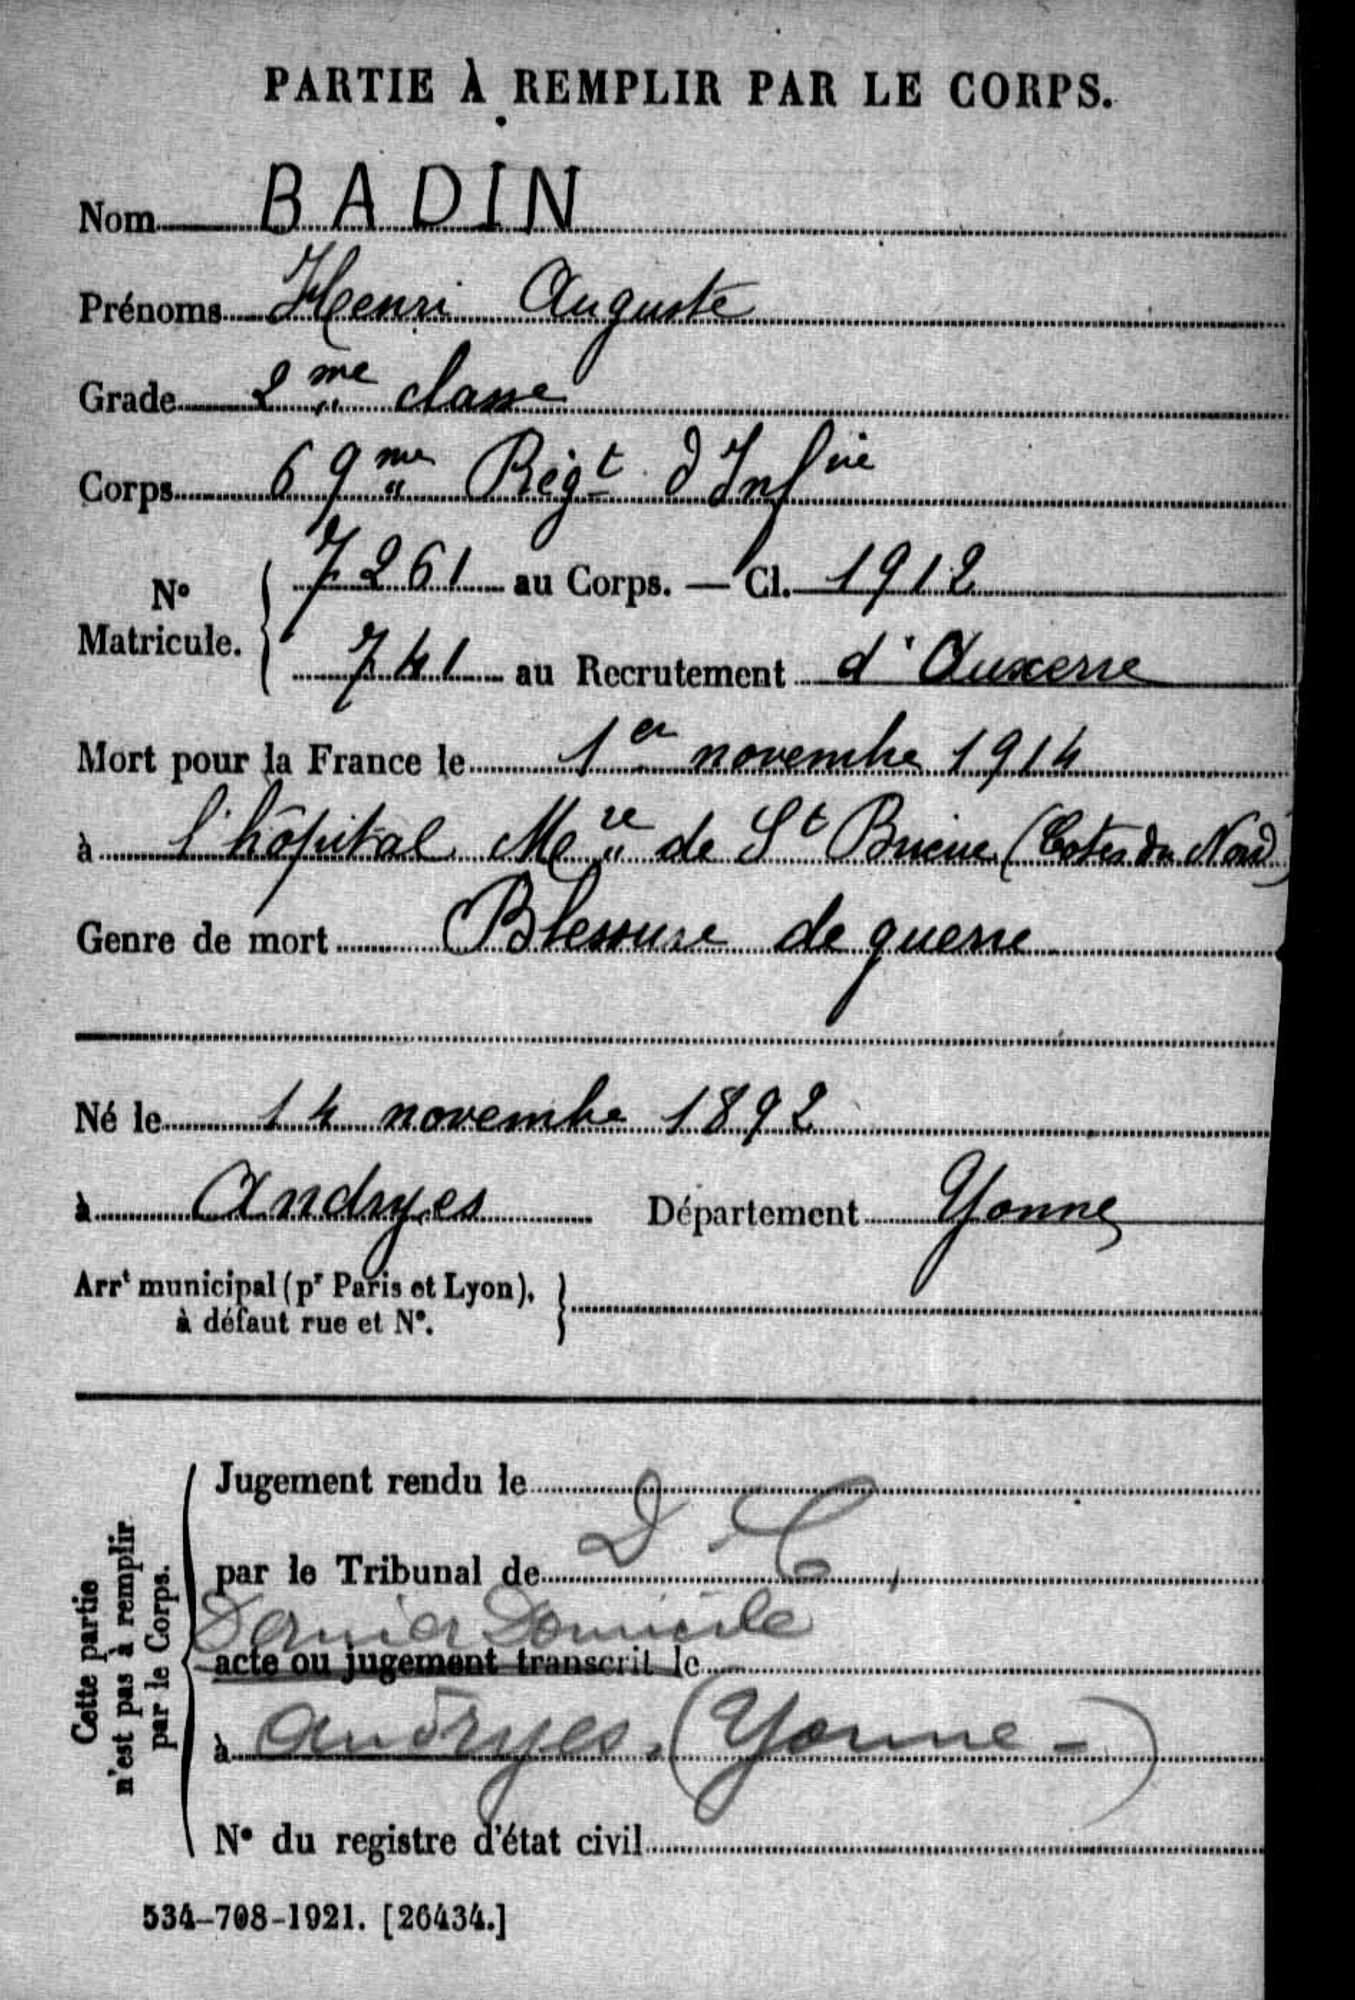 PARTIE À REMPLIR PAR LE CORPS.
Nom BADIN
Prénoms Henri Auguste
Grade 2me classe
Corps 69me Régt d'Infie
No 7261 au Corps. — Cl. 1912
Matricule. 741 au Recrutement d'Auxerre
Mort pour la France le 1er novembre 1914
à l'hôpital Mere de St Brieuc (Cotes du Nord)
Genre de mort Blessure de guerre
Né le 14 novembre 1892
à Andryes Département Yonne
Arrt municipal (pr Paris et Lyon),
à défaut rue et No.
Cette partie
n'est pas à remplir
par le Corps.
Jugement rendu le
par le Tribunal de D C
Dernier Domicile
acte ou jugement transcrit le
à Andryes. (Yonne-)
No du registre d'état civil
534-708-1921. [26434.]